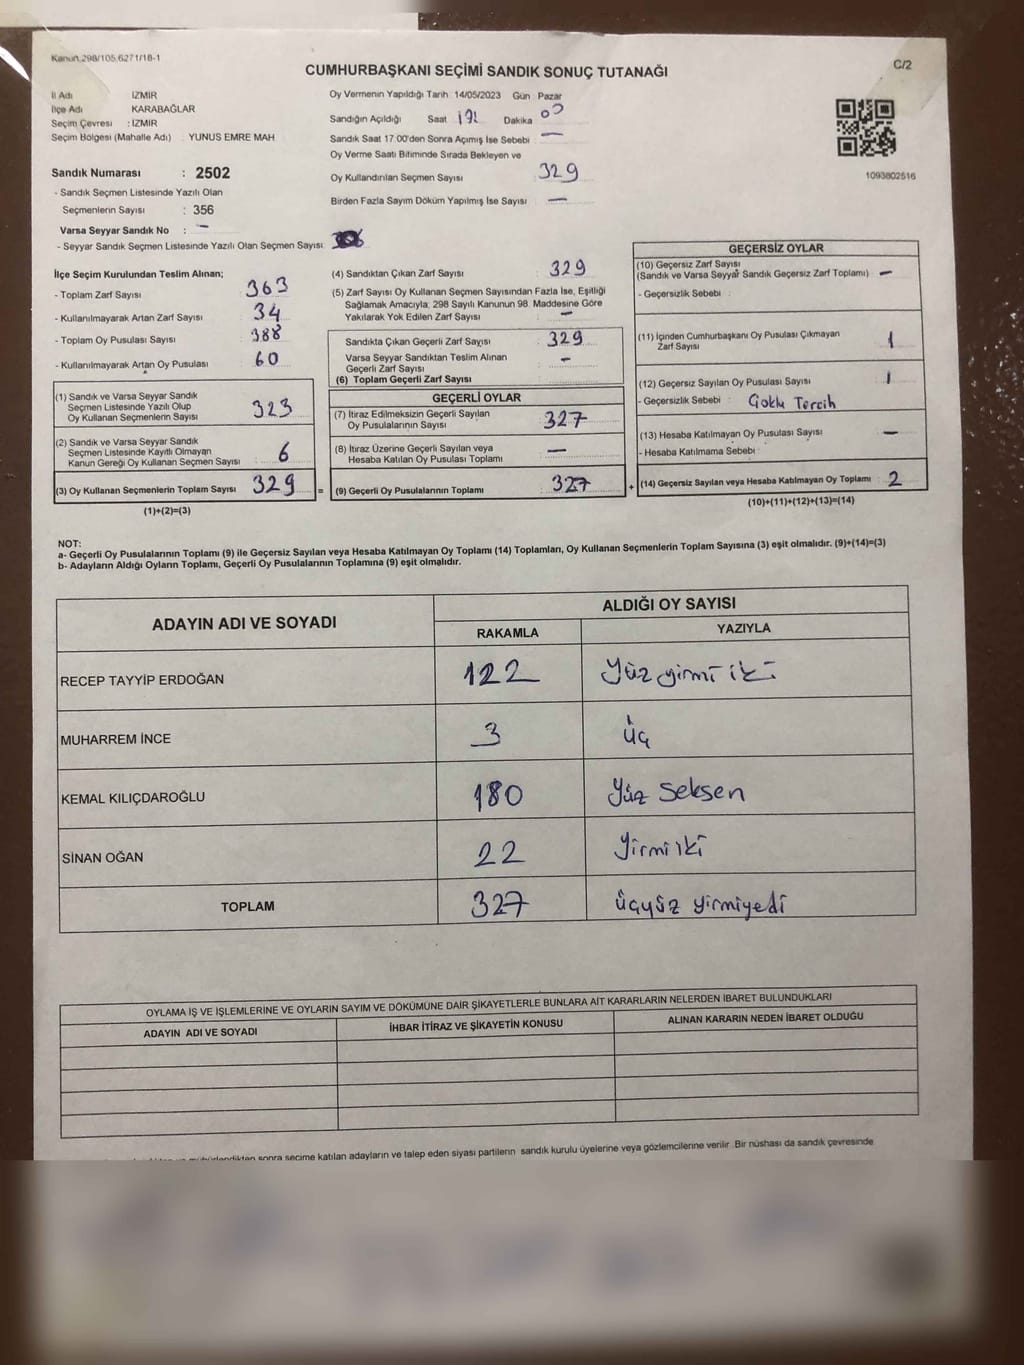 Kanun.298/105,6271/18-1
C/2
CUMHURBAŞKANI SEÇİMİ SANDIK SONUÇ TUTANAĞI
İl Adı İZMİR
İlçe Adı KARABAĞLAR
Seçim Çevresi : İZMİR
Seçim Bölgesi (Mahalle Adı) : YUNUS EMRE MAH.
Sandık Numarası : 2502
- Sandık Seçmen Listesinde Yazılı Olan
Seçmenlerin Sayısı : 356
Varsa Seyyar Sandık No : —
- Seyyar Sandık Seçmen Listesinde Yazılı Olan Seçmen Sayısı:
Oy Vermenin Yapıldığı Tarih 14/05/2023 Gün Pazar
Sandığın Açıldığı Saat Dakika
Sandık Saat 17:00'den Sonra Açılmış İse Sebebi —
Oy Verme Saati Bitiminde Sırada Bekleyen ve
Oy Kullandırılan Seçmen Sayısı 329
Birden Fazla Sayım Döküm Yapılmış İse Sayısı —
1093802516
İlçe Seçim Kurulundan Teslim Alınan;
- Toplam Zarf Sayısı : 363
- Kullanılmayarak Artan Zarf Sayısı : 34
- Toplam Oy Pusulası Sayısı : 388
- Kullanılmayarak Artan Oy Pusulası : 60
(1) Sandık ve Varsa Seyyar Sandık
Seçmen Listesinde Yazılı Olup
Oy Kullanan Seçmenlerin Sayısı : 323
(2) Sandık ve Varsa Seyyar Sandık
Seçmen Listesinde Kayıtlı Olmayan
Kanun Gereği Oy Kullanan Seçmen Sayısı : 6
(3) Oy Kullanan Seçmenlerin Toplam Sayısı : 329
(1)+(2)=(3)
=
(4) Sandıktan Çıkan Zarf Sayısı : 329
(5) Zarf Sayısı Oy Kullanan Seçmen Sayısından Fazla İse, Eşitliği
Sağlamak Amacıyla, 298 Sayılı Kanunun 98. Maddesine Göre
Yakılarak Yok Edilen Zarf Sayısı : —
Sandıkta Çıkan Geçerli Zarf Sayısı : 329
Varsa Seyyar Sandıktan Teslim Alınan
Geçerli Zarf Sayısı : —
(6) Toplam Geçerli Zarf Sayısı :
GEÇERLİ OYLAR
(7) İtiraz Edilmeksizin Geçerli Sayılan
Oy Pusulalarının Sayısı : 327
(8) İtiraz Üzerine Geçerli Sayılan veya
Hesaba Katılan Oy Pusulası Toplamı : —
(9) Geçerli Oy Pusulalarının Toplamı : 327
+
GEÇERSİZ OYLAR
(10) Geçersiz Zarf Sayısı
(Sandık ve Varsa Seyyar Sandık Geçersiz Zarf Toplamı) : —
- Geçersizlik Sebebi :
(11) İçinden Cumhurbaşkanı Oy Pusulası Çıkmayan
Zarf Sayısı : 1
(12) Geçersiz Sayılan Oy Pusulası Sayısı : 1
- Geçersizlik Sebebi : Çoklu Tercih
(13) Hesaba Katılmayan Oy Pusulası Sayısı : —
- Hesaba Katılmama Sebebi :
(14) Geçersiz Sayılan veya Hesaba Katılmayan Oy Toplamı : 2
(10)+(11)+(12)+(13)=(14)
NOT:
a- Geçerli Oy Pusulalarının Toplamı (9) ile Geçersiz Sayılan veya Hesaba Katılmayan Oy Toplamı (14) Toplamları, Oy Kullanan Seçmenlerin Toplam Sayısına (3) eşit olmalıdır. (9)+(14)=(3)
b- Adayların Aldığı Oyların Toplamı, Geçerli Oy Pusulalarının Toplamına (9) eşit olmalıdır.
ADAYIN ADI VE SOYADI ALDIĞI OY SAYISI
RAKAMLA YAZIYLA
RECEP TAYYİP ERDOĞAN 122 Yüz yirmi iki
MUHARREM İNCE 3 üç
KEMAL KILIÇDAROĞLU 180 Yüz Seksen
SİNAN OĞAN 22 Yirmi iki
TOPLAM 327 üçyüz yirmiyedi
OYLAMA İŞ VE İŞLEMLERİNE VE OYLARIN SAYIM VE DÖKÜMÜNE DAİR ŞİKAYETLERLE BUNLARA AİT KARARLARIN NELERDEN İBARET BULUNDUKLARI
ADAYIN ADI VE SOYADI İHBAR İTİRAZ VE ŞİKAYETİN KONUSU ALINAN KARARIN NEDEN İBARET OLDUĞU
sonra seçime katılan adayların ve talep eden siyasi partilerin sandık kurulu üyelerine veya gözlemcilerine verilir. Bir nüshası da sandık çevresinde